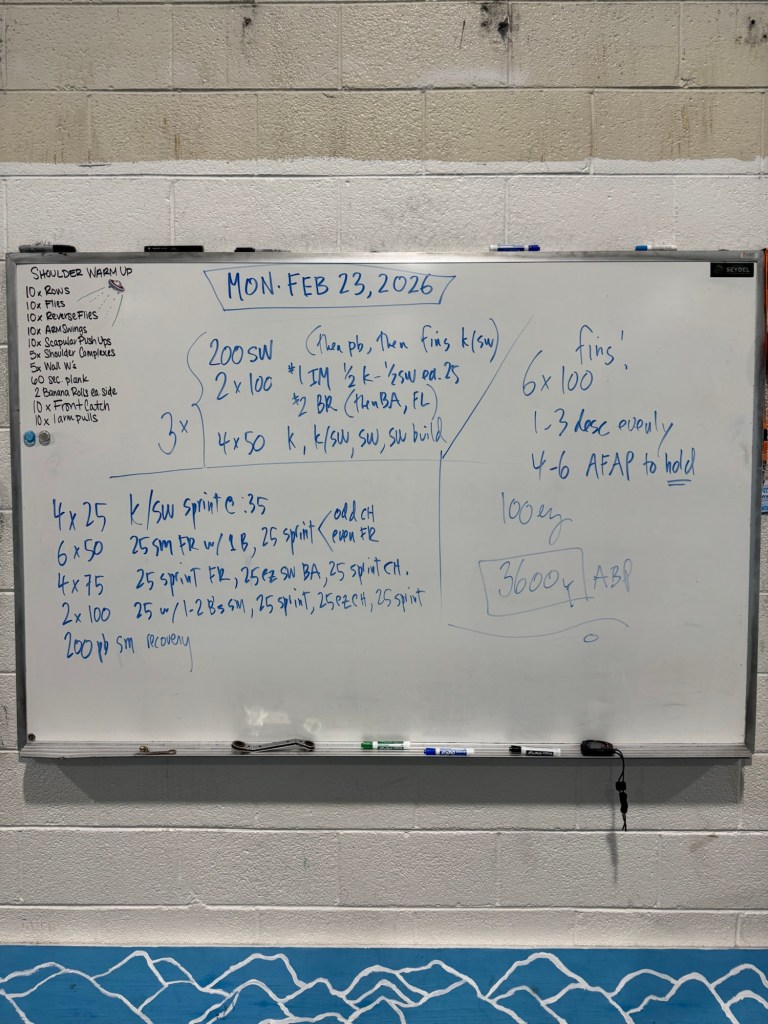 SHOULDER WARM UP
10x Rows
10x Flies
10x Reverse Flies
10x Arm Swings
10x Scapular Push Ups
5x Shoulder Complexes
5x Wall W's
60 sec. plank
2 Banana Rolls ea. side
10x Front Catch
10x 1 arm pulls
MON. FEB 23, 2026
3x
200 SW (then pb, then fins k/sw)
2 x 100 #1 IM ½ k - ½ sw ea. 25
#2 BR (then BA, FL)
4 x 50 k, k/sw, sw, sw build
4 x 25 k/sw sprint @ :35
6 x 50 25 sm FR w/ 1 B, 25 sprint < odd CH
even FR
4 x 75 25 sprint FR, 25 ez sw BA, 25 sprint CH.
2 x 100 25 w/ 1-2 B's sm, 25 sprint, 25 ez CH, 25 sprint
200 pb sm recovery
fins!
6 x 100
1-3 desc evenly
4-6 AFAP to hold
100 ez
3600y ABP
SEYDEL
EXPO